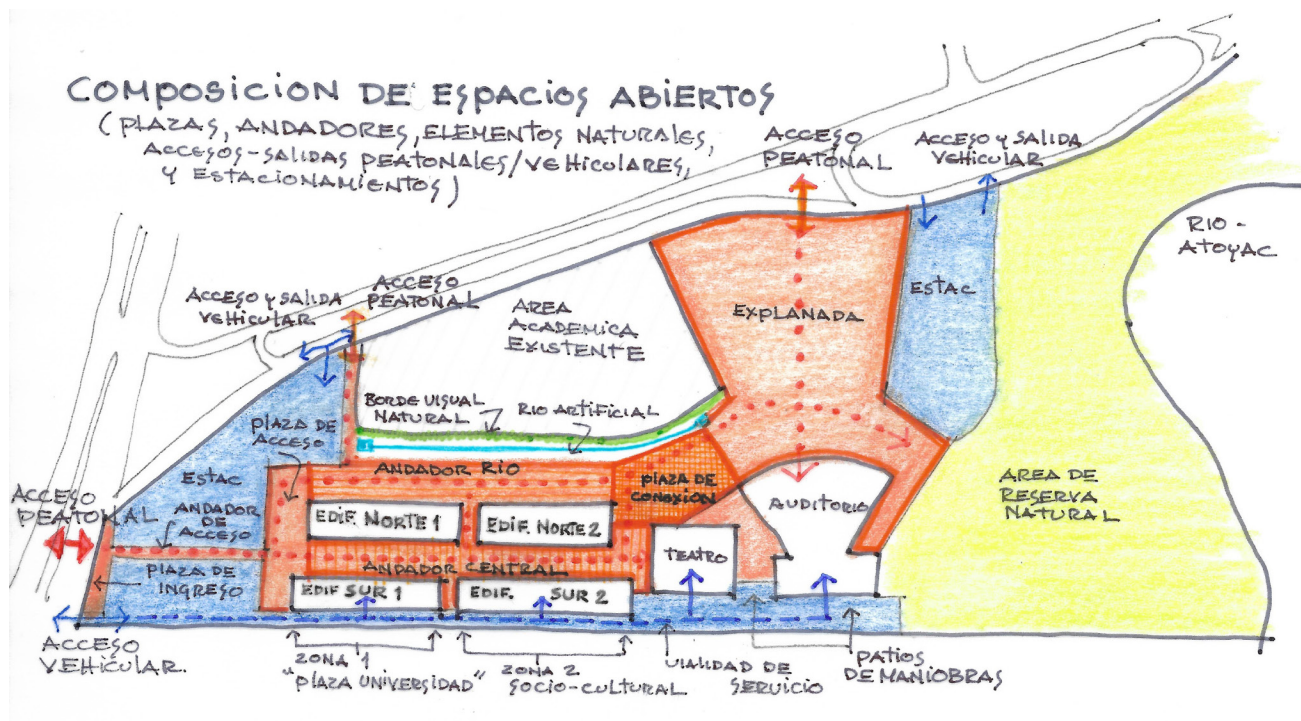 COMPOSICION DE ESPACIOS ABIERTOS
(PLAZAS, ANDADORES, ELEMENTOS NATURALES,
ACCESOS-SALIDAS PEATONALES/VEHICULARES,
Y ESTACIONAMIENTOS)
ACCESO
PEATONAL
ACCESO Y SALIDA
VEHICULAR
RIO-
ATOYAC
ACCESO Y SALIDA
VEHICULAR
ACCESO
PEATONAL
AREA
ACADEMICA
EXISTENTE
EXPLANADA
ESTAC
BORDE VISUAL
NATURAL
RIO ARTIFICIAL
PLAZA DE
ACCESO
ESTAC
ANDADOR RÍO
PLAZA DE
CONEXION
AUDITORIO
AREA DE
RESERVA
NATURAL
ACCESO
PEATONAL
ANDADOR
DE
ACCESO
EDIF. NORTE 1
EDIF. NORTE 2
TEATRO
ANDADOR CENTRAL
PLAZA DE
INGRESO
EDIF SUR 1
EDIF. SUR 2
ACCESO
VEHICULAR.
ZONA 1
"PLAZA UNIVERSIDAD"
ZONA 2
SOCIO-CULTURAL
VIALIDAD DE
SERVICIO
PATIOS
DE MANIOBRAS